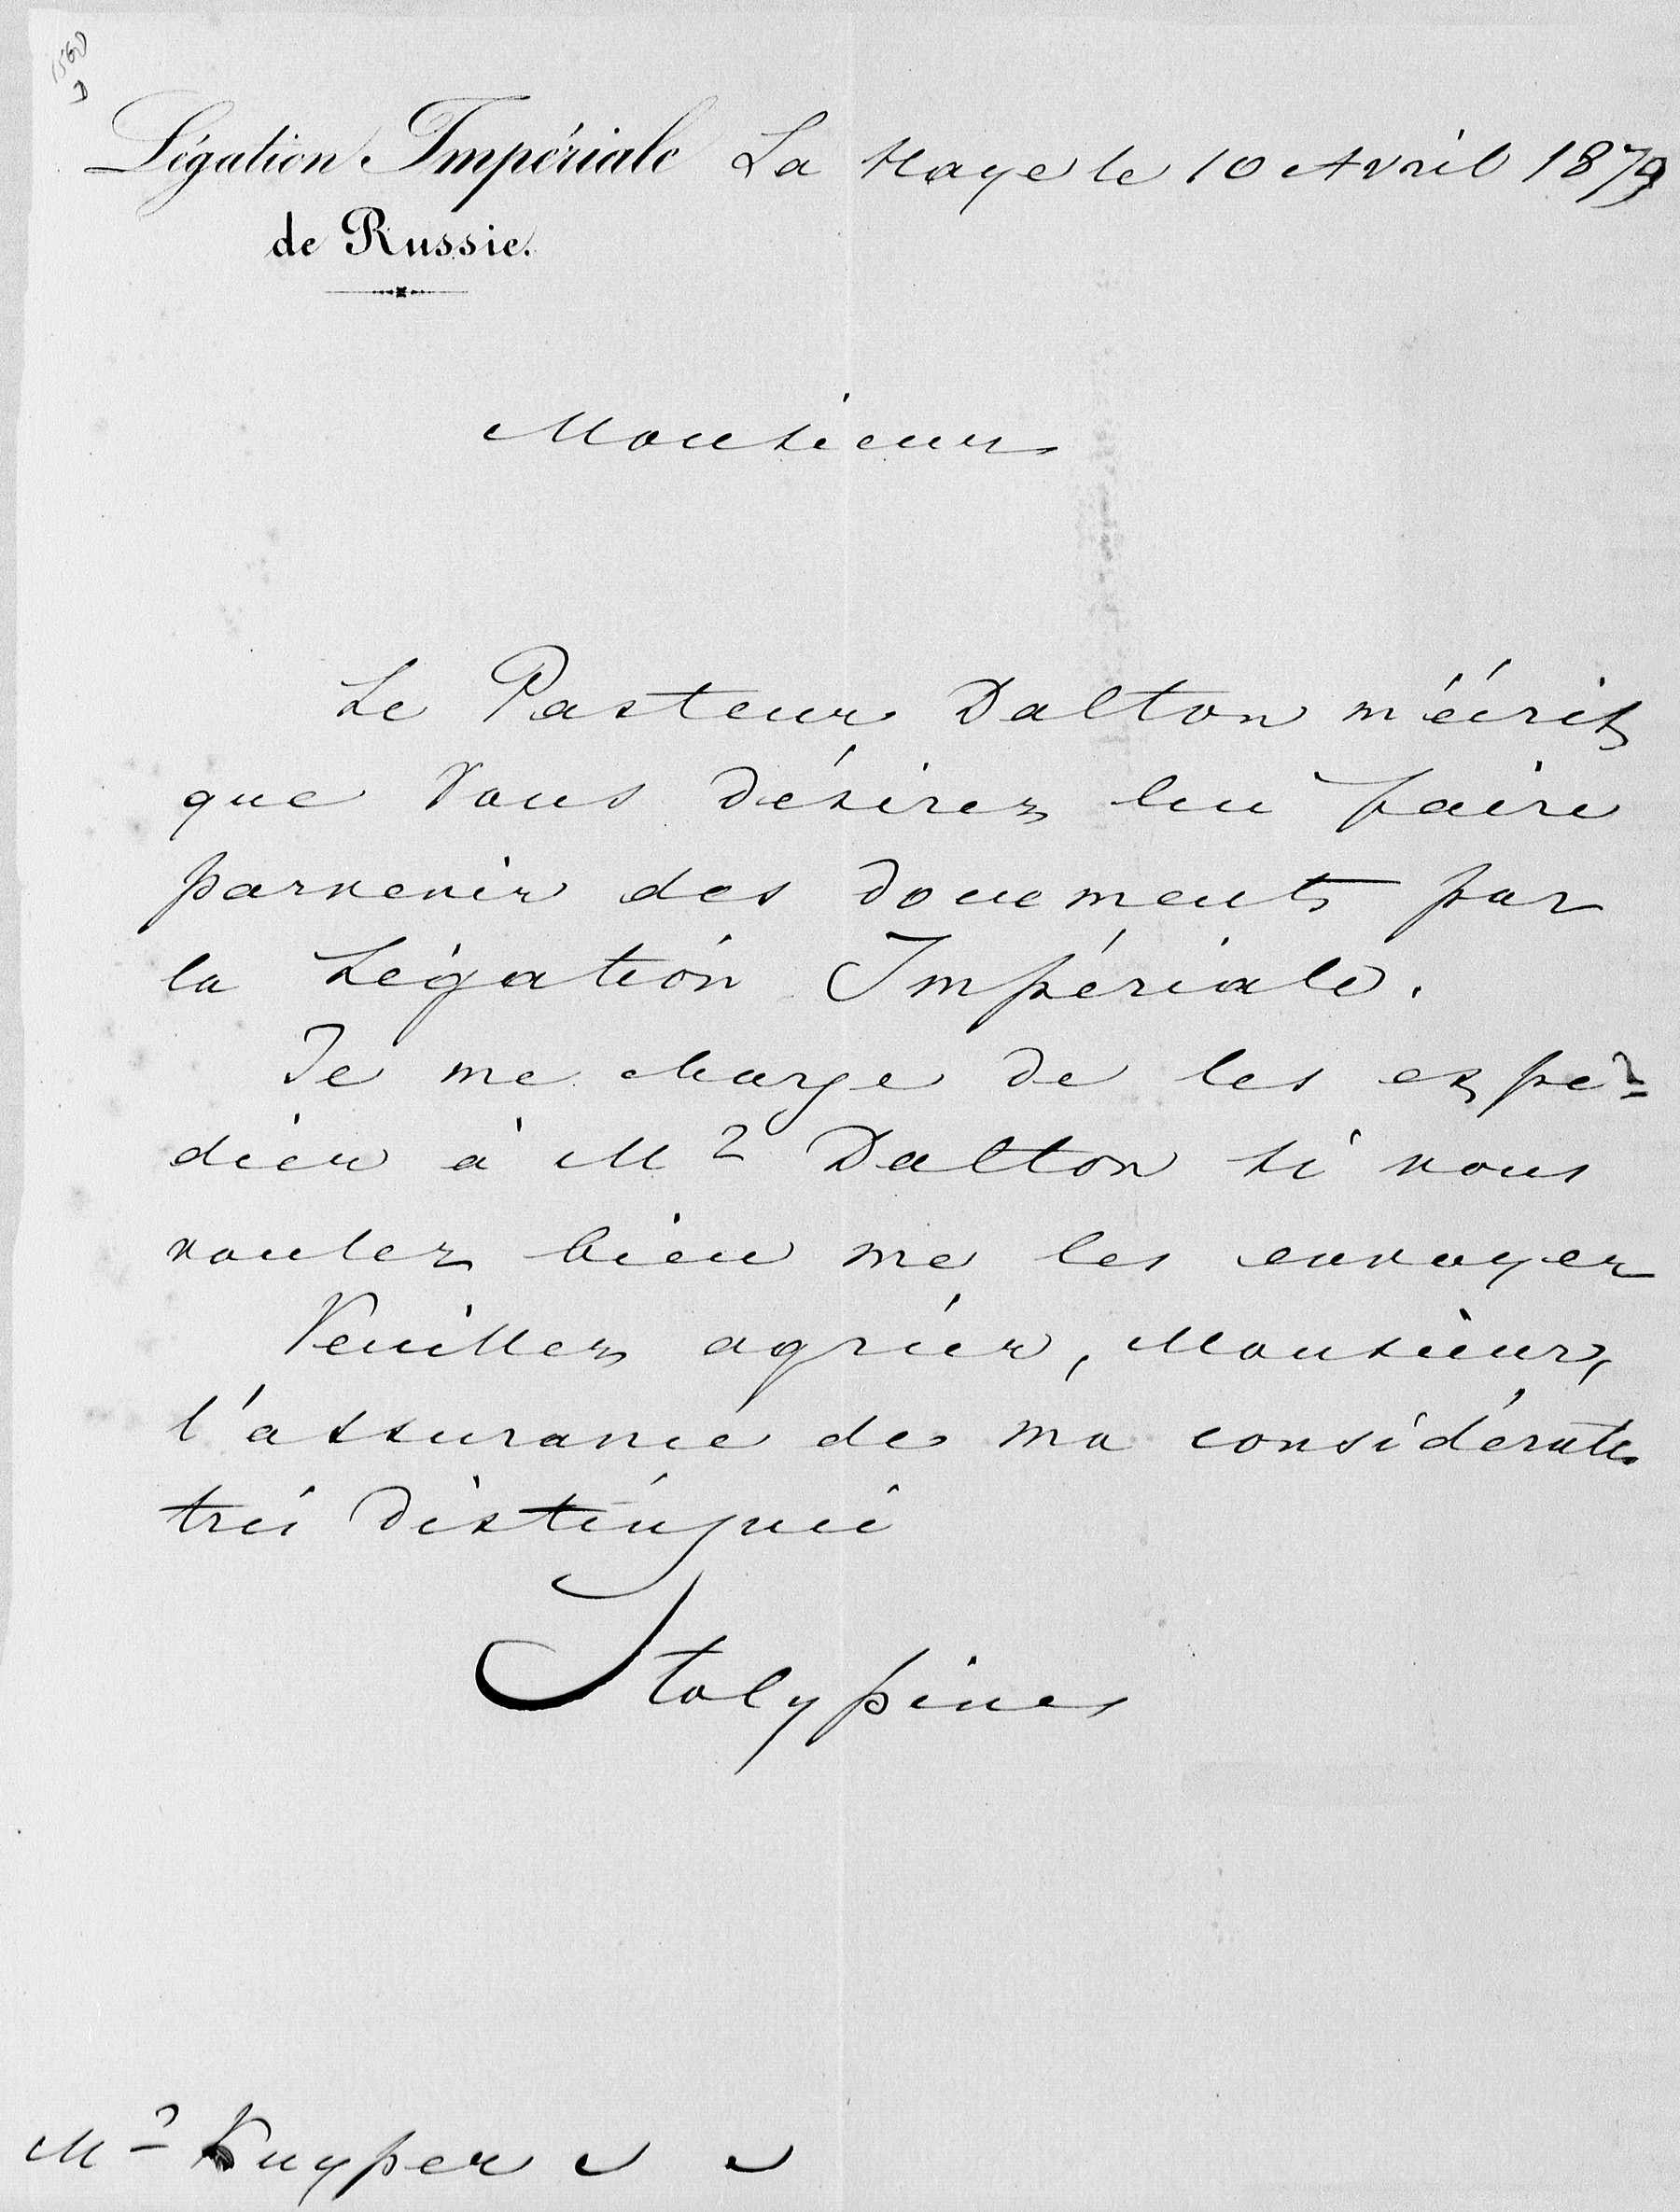 1560
Légation Impériale La Haye le 10 Avril 1879
de Russie.
Monsieur
Le Pasteur Dalton m'écrit
que Vous désirez lui faire
parvenir des documents par
la Légation Impériale.
Je me charge de les expé-
dier à Mr Dalton si vous
voulez bien me les envoyer
Veuillez agréer, Monsieur,
l'assurance de ma considérat
très distinguée
Stolypine
Mr Kuyper